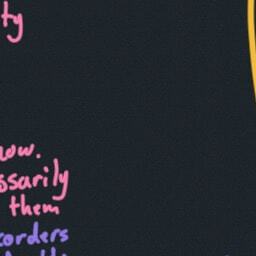 ty
ow.
ssarily
them
corders